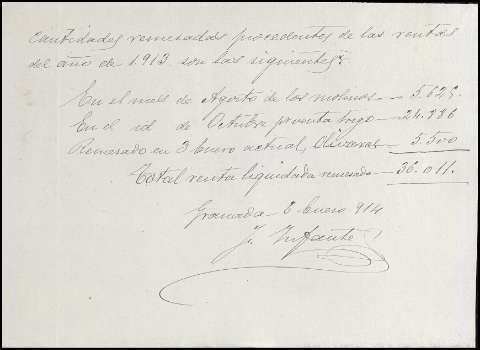 Cantidades remesadas procedentes de las rentas
del año de 1.913 son las siguientes:
En el mes de Agosto de los molinos - 5.625.
En el id de Octubre por venta trigo - 24.886
Remesado en 3 Enero actual, Olivares - 5.500
Total renta liquidada remesado - 36.011.
Granada 8 Enero 914
J. Infante